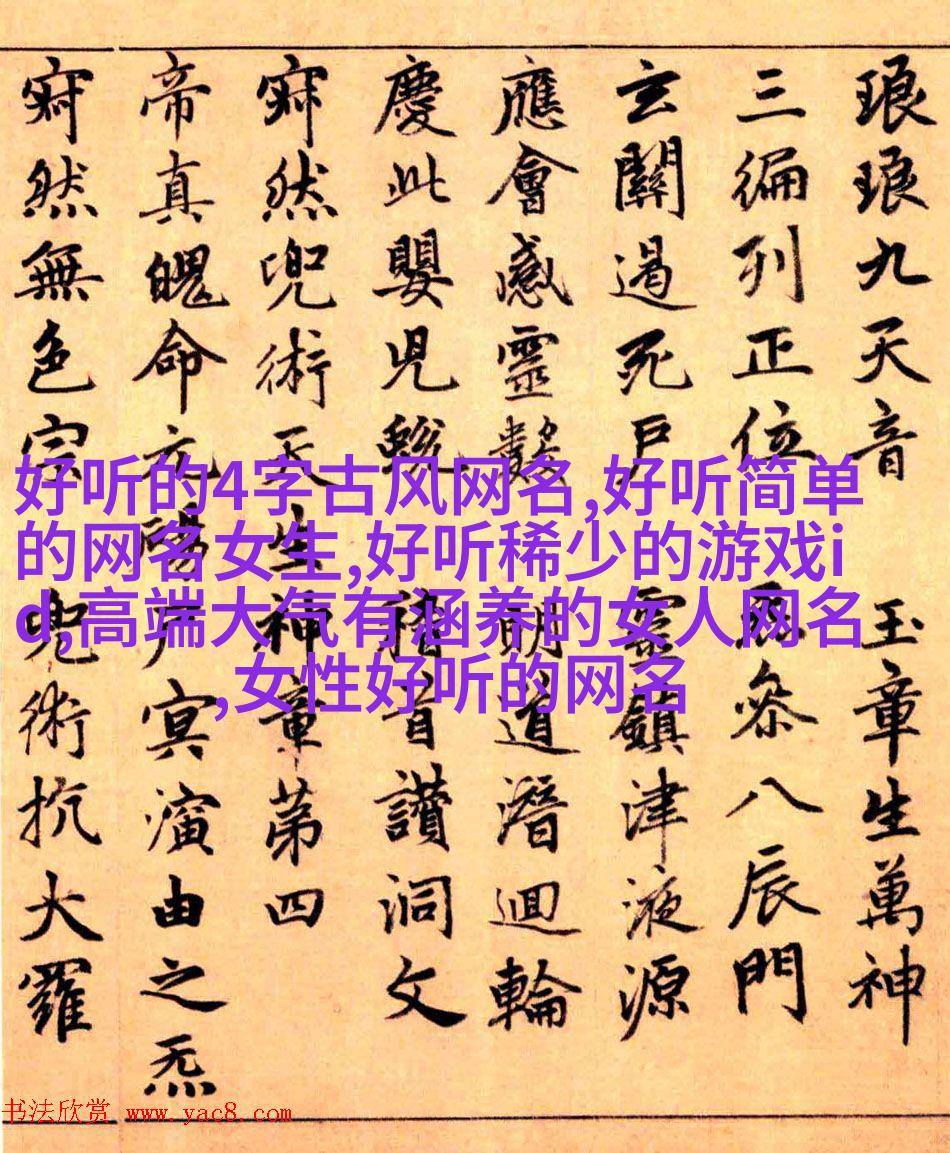 琅琅九天音 玉章生萬神
三徧列正位 叅八辰門
玄關遏死戶 靈鎮津液源
應會感靈數 道潛迴輪
慶此嬰兒蛻 稽首讚洞文
寂然兜術天生神章第四
帝真魄命元陽 冥演由之炁
寂然無色宗兜術抗大羅
好听的4字古风网名,好听简单
的网名女生,好听稀少的游戏i
d,高端大气有涵养的女人网名
,女性好听的网名
书法欣赏 www.yac8.com